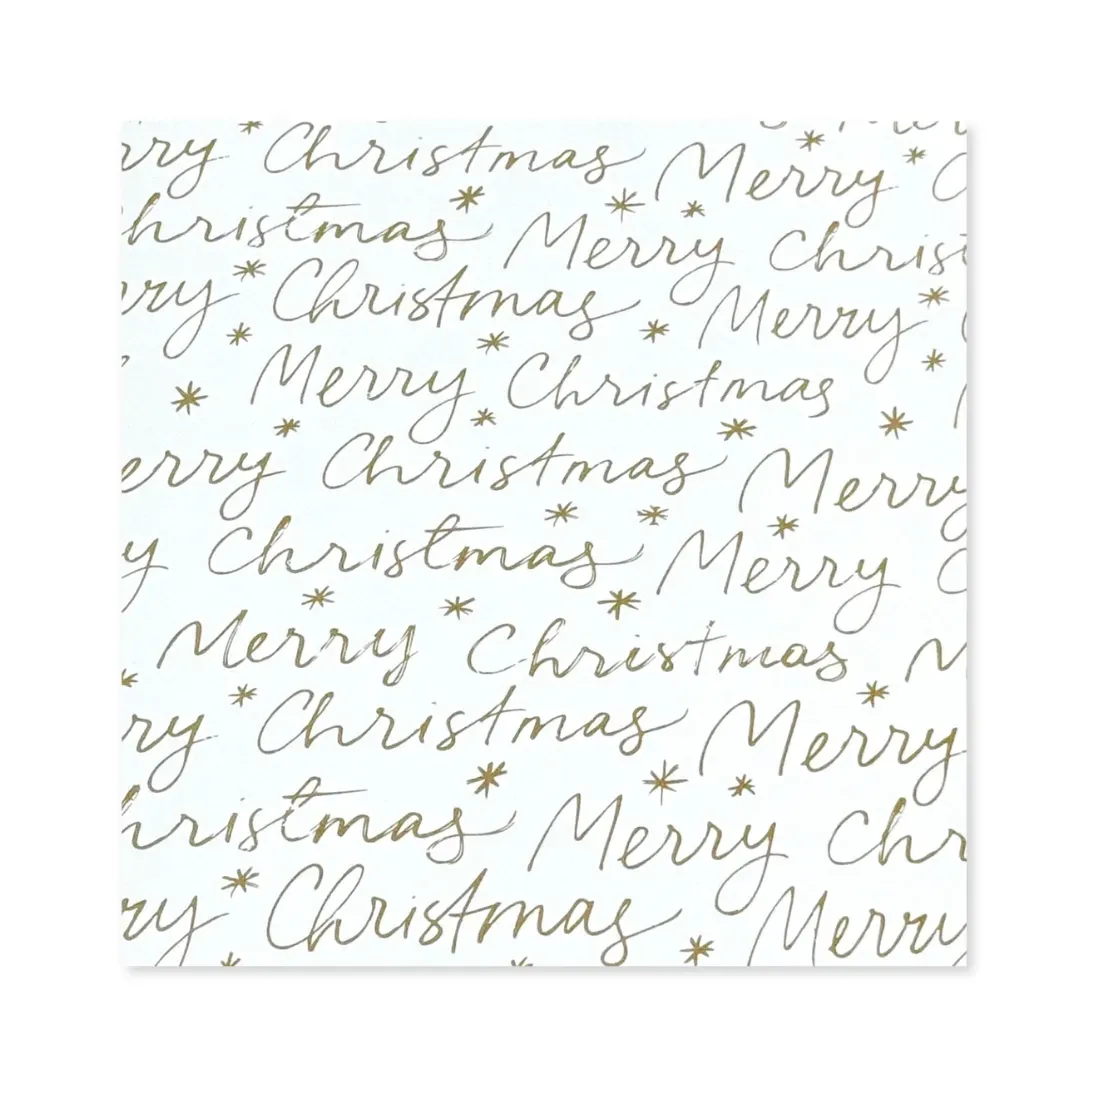 rry Christmas Merry C
hristmas Merry Christ
rry Christmas Merry
Merry Christmas
erry Christmas Merry
y Christmas Merry C
Merry Christmas M
rry Christmas Merry
hristmas Merry Chr
ry Christmas Merry